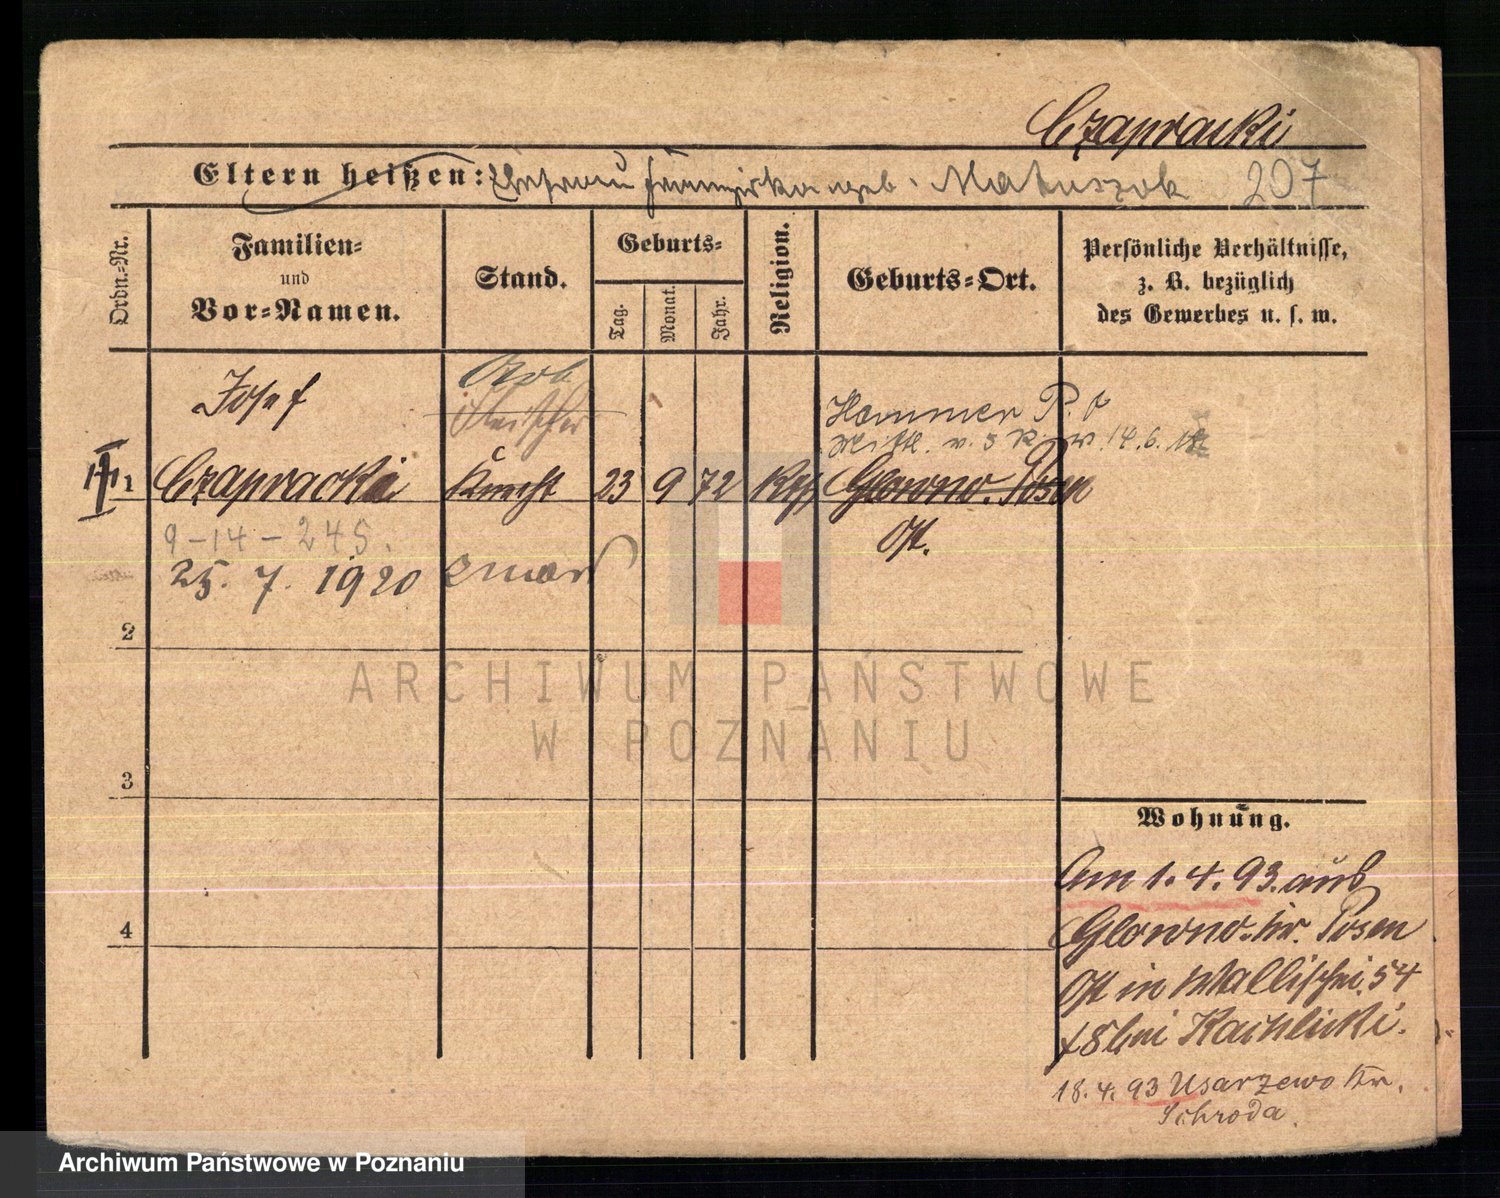 Czapracki
Eltern heißen: Ehefrau Franziska geb. Matuszak 207
Ordn.-Nr.
Familien- und Vor-Namen.
Stand.
Geburts-
Tag.
Monat.
Jahr.
Religion.
Geburts-Ort.
Persönliche Verhältnisse,
z. B. bezüglich
des Gewerbes u. s. w.
Josef
Arb
Fleischer
Hammer P. O
Mittl. v. 5 R. w. 14. 6.
1 Czapracki Knecht 23 9 72 Kth Glowno. Posen
Ost.
9-14-245.
25. 7. 1920 zmarł
2
3
4
Wohnung.
Am 1. 4. 93. aus
Glowno. kr. Posen
Ost in Wallischei. 54
bei
18. 4. 93 Usarzewo Kr.
Schroda.
ARCHIWUM PAŃSTWOWE
W POZNANIU
Archiwum Państwowe w Poznaniu